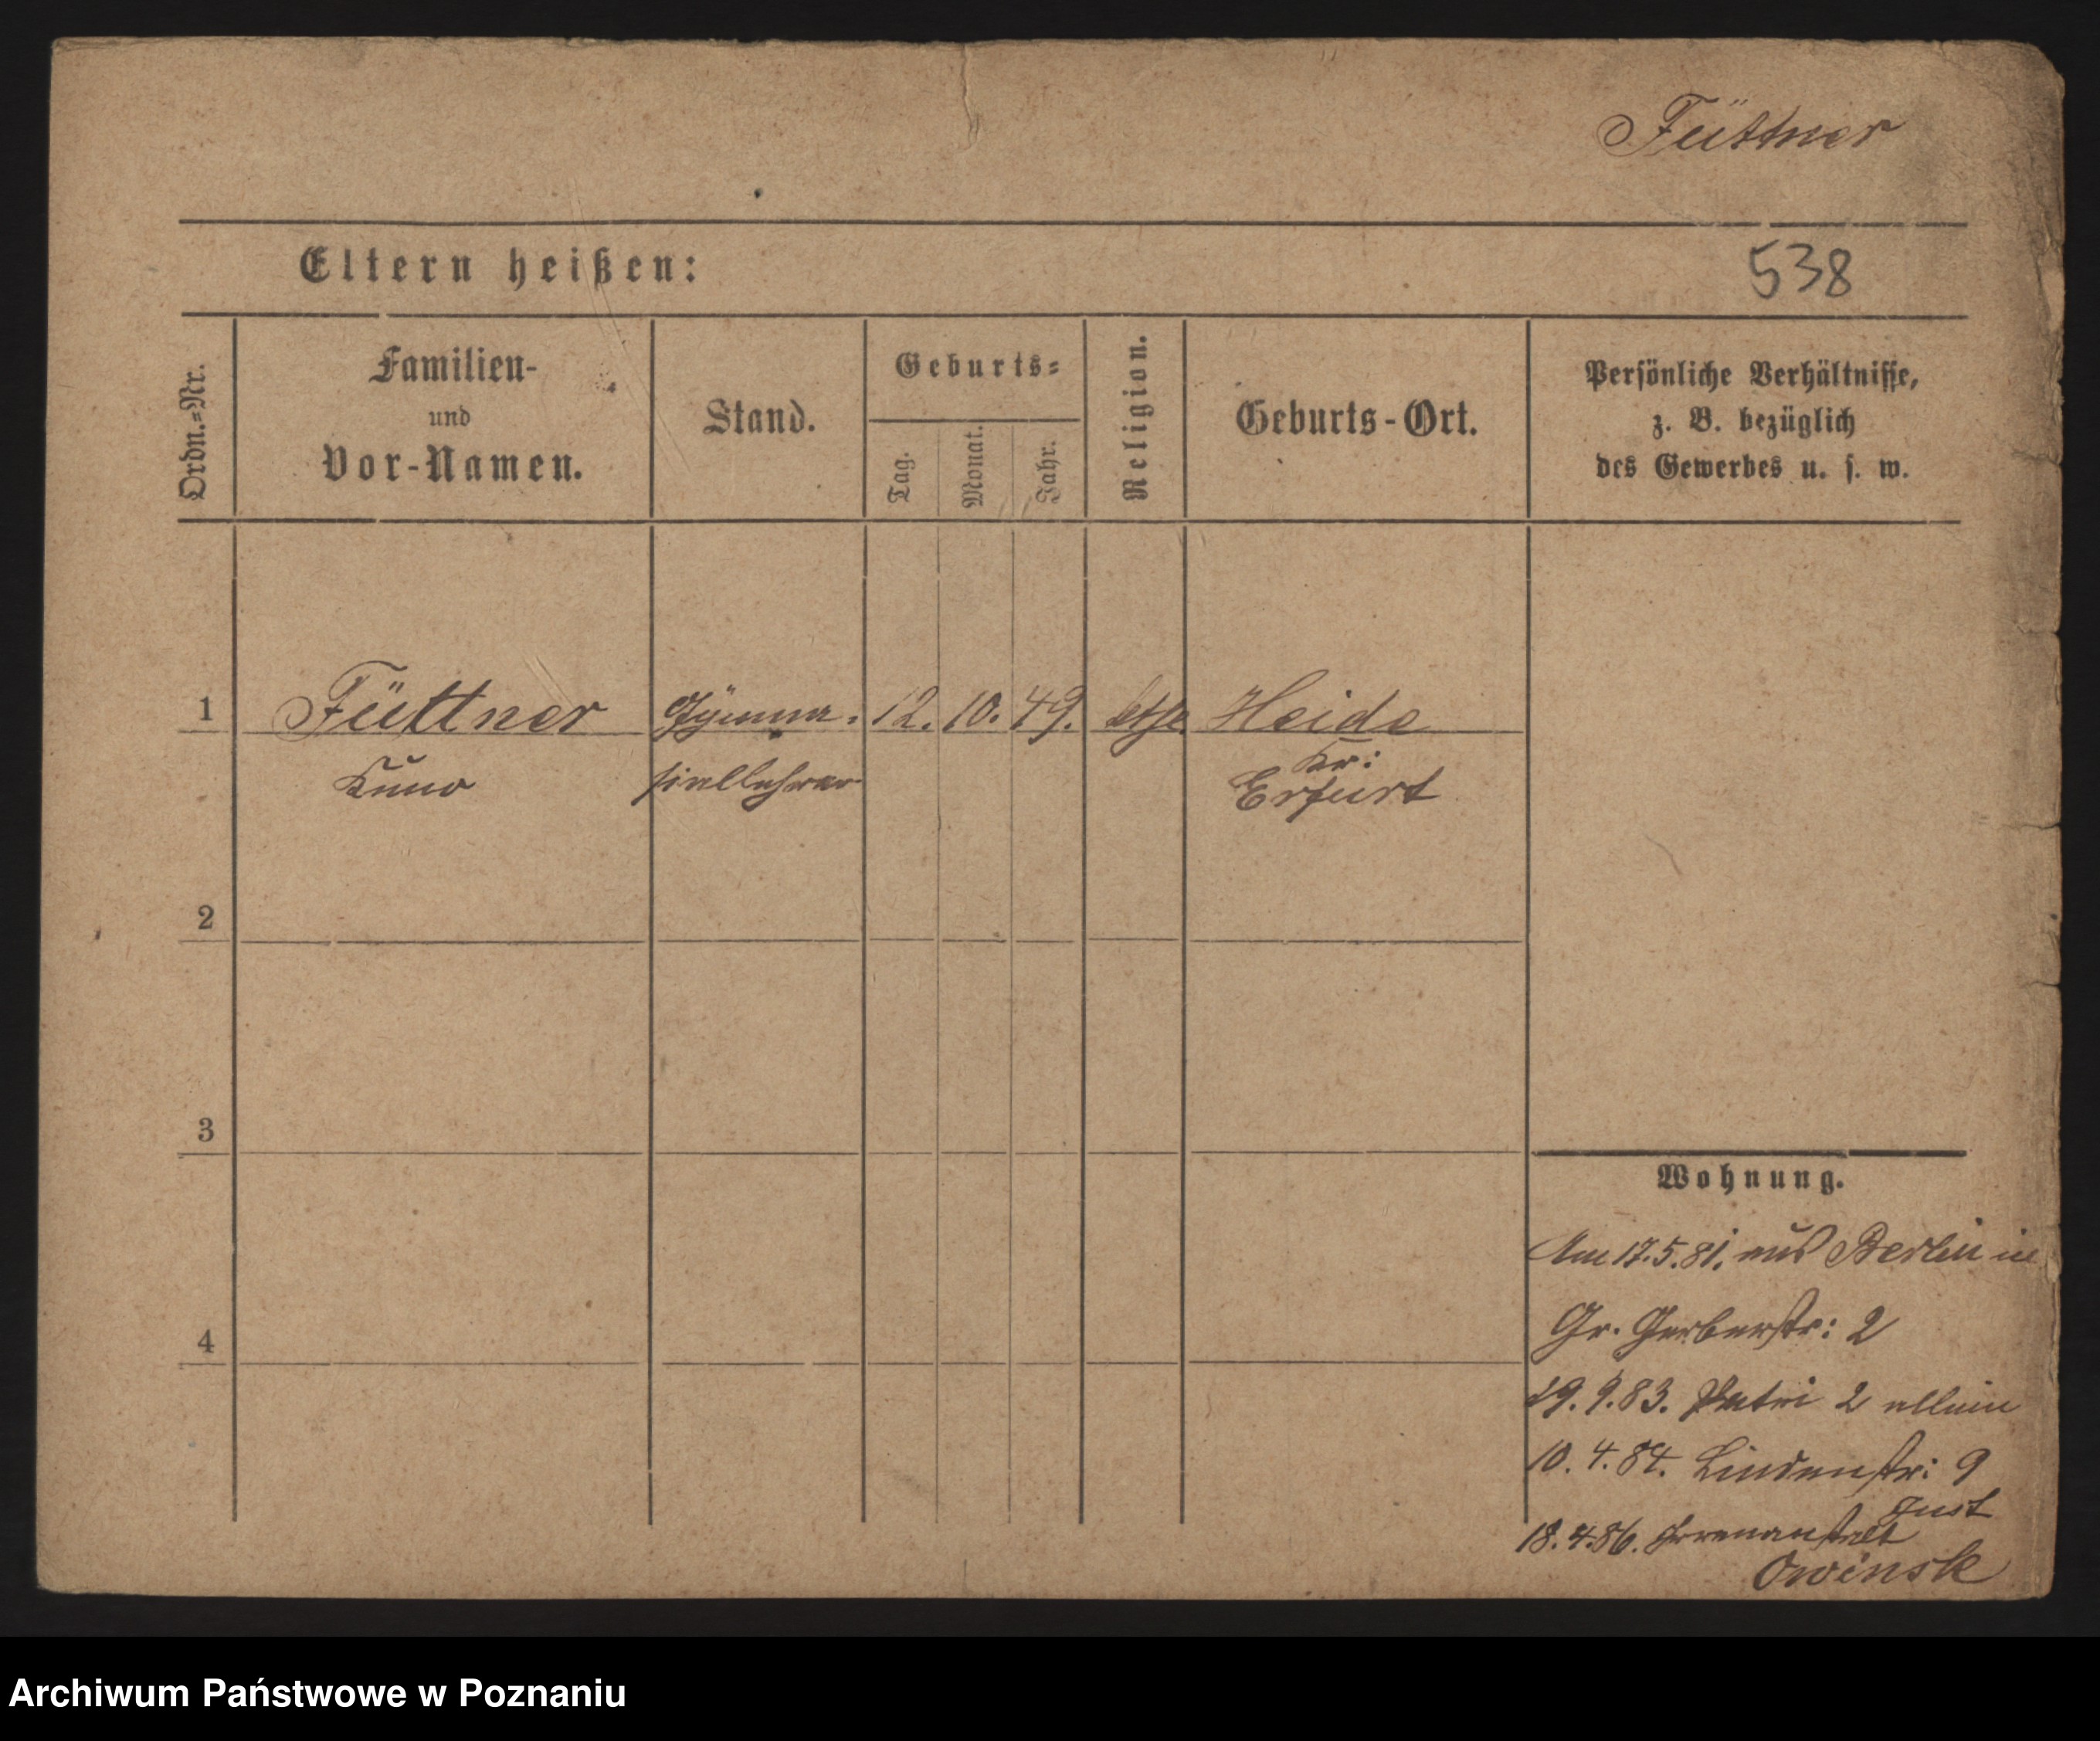 Füttner
Eltern heißen:
538
Ordn.=Nr.
Familien-
und
Vor-Namen.
Stand.
Geburts=
Tag.
Monat.
Jahr.
Religion.
Geburts-Ort.
Persönliche Verhältnisse,
z. B. bezüglich
des Gewerbes u. s. w.
1 Füttner Gymna. 12. 10. 49. Heide
Kuno siallehrer Kr: Erfurt
2
3
4
Wohnung.
Am 17.5.81. aus Berlin in
Gr. Gerberstr: 2
29.9.83. Petri 2 allein
10.4.84. Lindenstr: 9
Just
18.4.86. Irrenanstalt
Owinsk
Archiwum Państwowe w Poznaniu